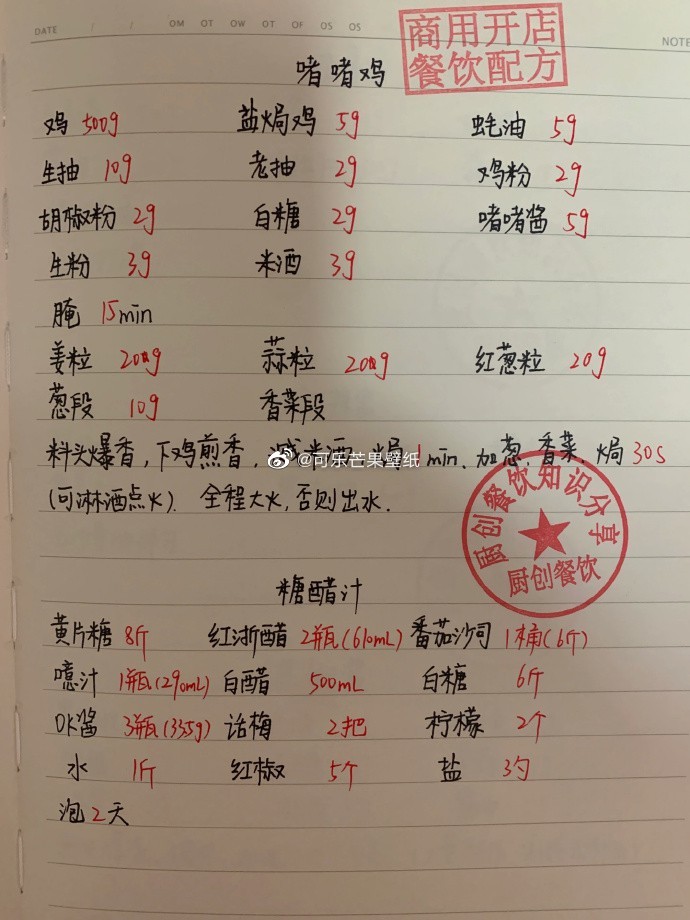 DATE / / OM OT OW OT OF OS OS
NOTE
商用开店
餐饮配方
啫啫鸡
鸡 500g 盐焗鸡 5g 蚝油 5g
生抽 10g 老抽 2g 鸡粉 2g
胡椒粉 2g 白糖 2g 啫啫酱 5g
生粉 3g 米酒 3g
腌 15min
姜粒 200g 蒜粒 200g 红葱粒 20g
葱段 10g 香菜段
料头爆香,下鸡煎香, 米酒 焗 1min、加葱、香菜、焗 30s
@可乐芒果壁纸
(可淋酒点火). 全程大火,否则出水.
厨创餐饮知识分享
厨创餐饮
糖醋汁
黄片糖 8斤 红浙醋 2瓶(610mL) 番茄沙司 1桶(6斤)
噫汁 1瓶(290mL) 白醋 500mL 白糖 6斤
OK酱 3瓶(335g) 话梅 2把 柠檬 2个
水 1斤 红椒 5个 盐 3勺
泡 2天